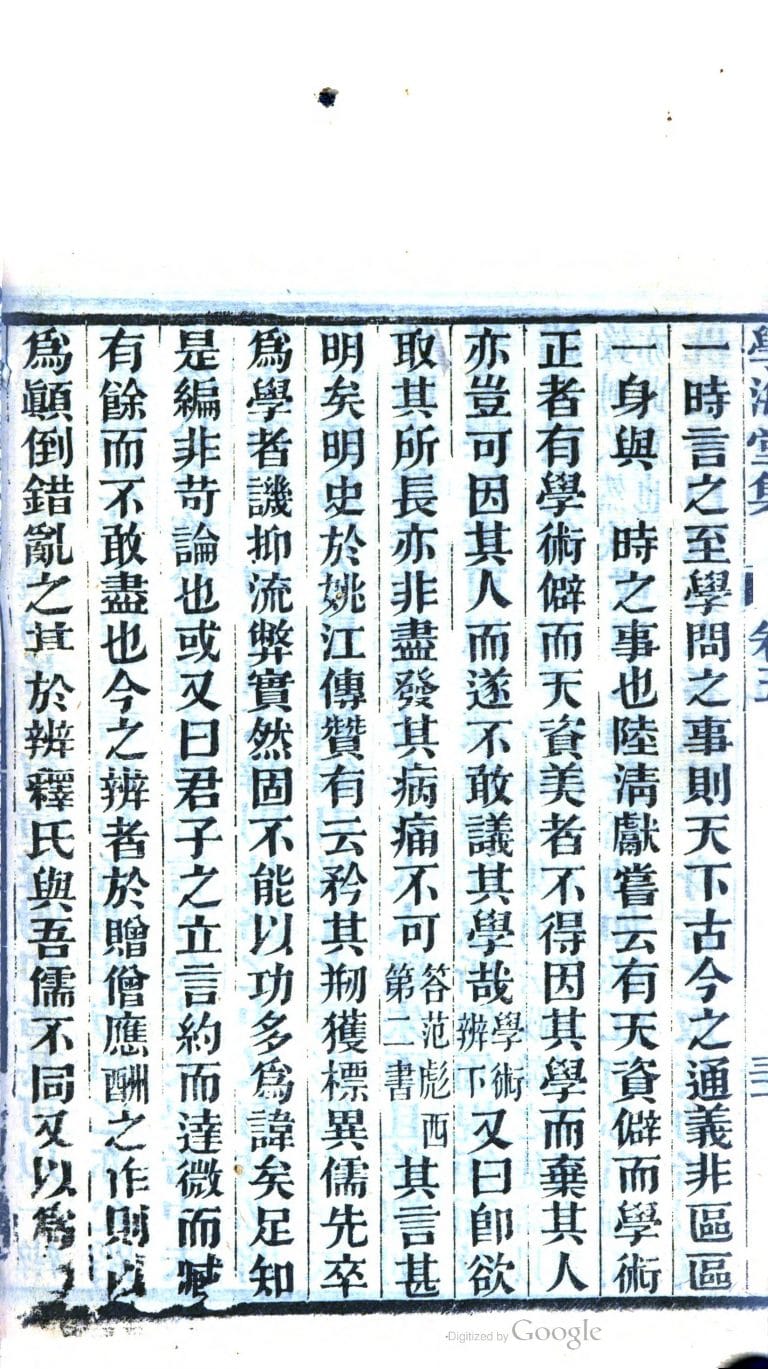 學海堂集 卷五 三
一時言之至學問之事則天下古今之通義非區區
一身與 時之事也陸淸獻嘗云有天資僻而學術
正者有學術僻而天資美者不得因其學而棄其人
亦豈可因其人而遂不敢議其學哉學術辨下又曰卽欲
取其所長亦非盡發其病痛不可答范彪西第二書其言甚
明矣明史於姚江傳贊有云矜其刱獲標異儒先卒
爲學者譏抑流弊實然固不能以功多爲諱矣足知
是編非苛論也或又曰君子之立言約而達微而臧
有餘而不敢盡也今之辨者於贈僧應酬之作則以
爲顚倒錯亂之甚於辨釋氏與吾儒不同又以爲
Digitized by Google